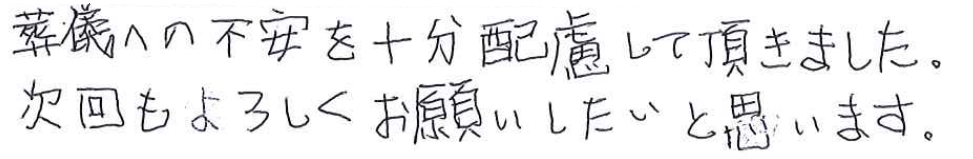 葬儀への不安を十分配慮して頂きました。
次回もよろしくお願いしたいと思います。